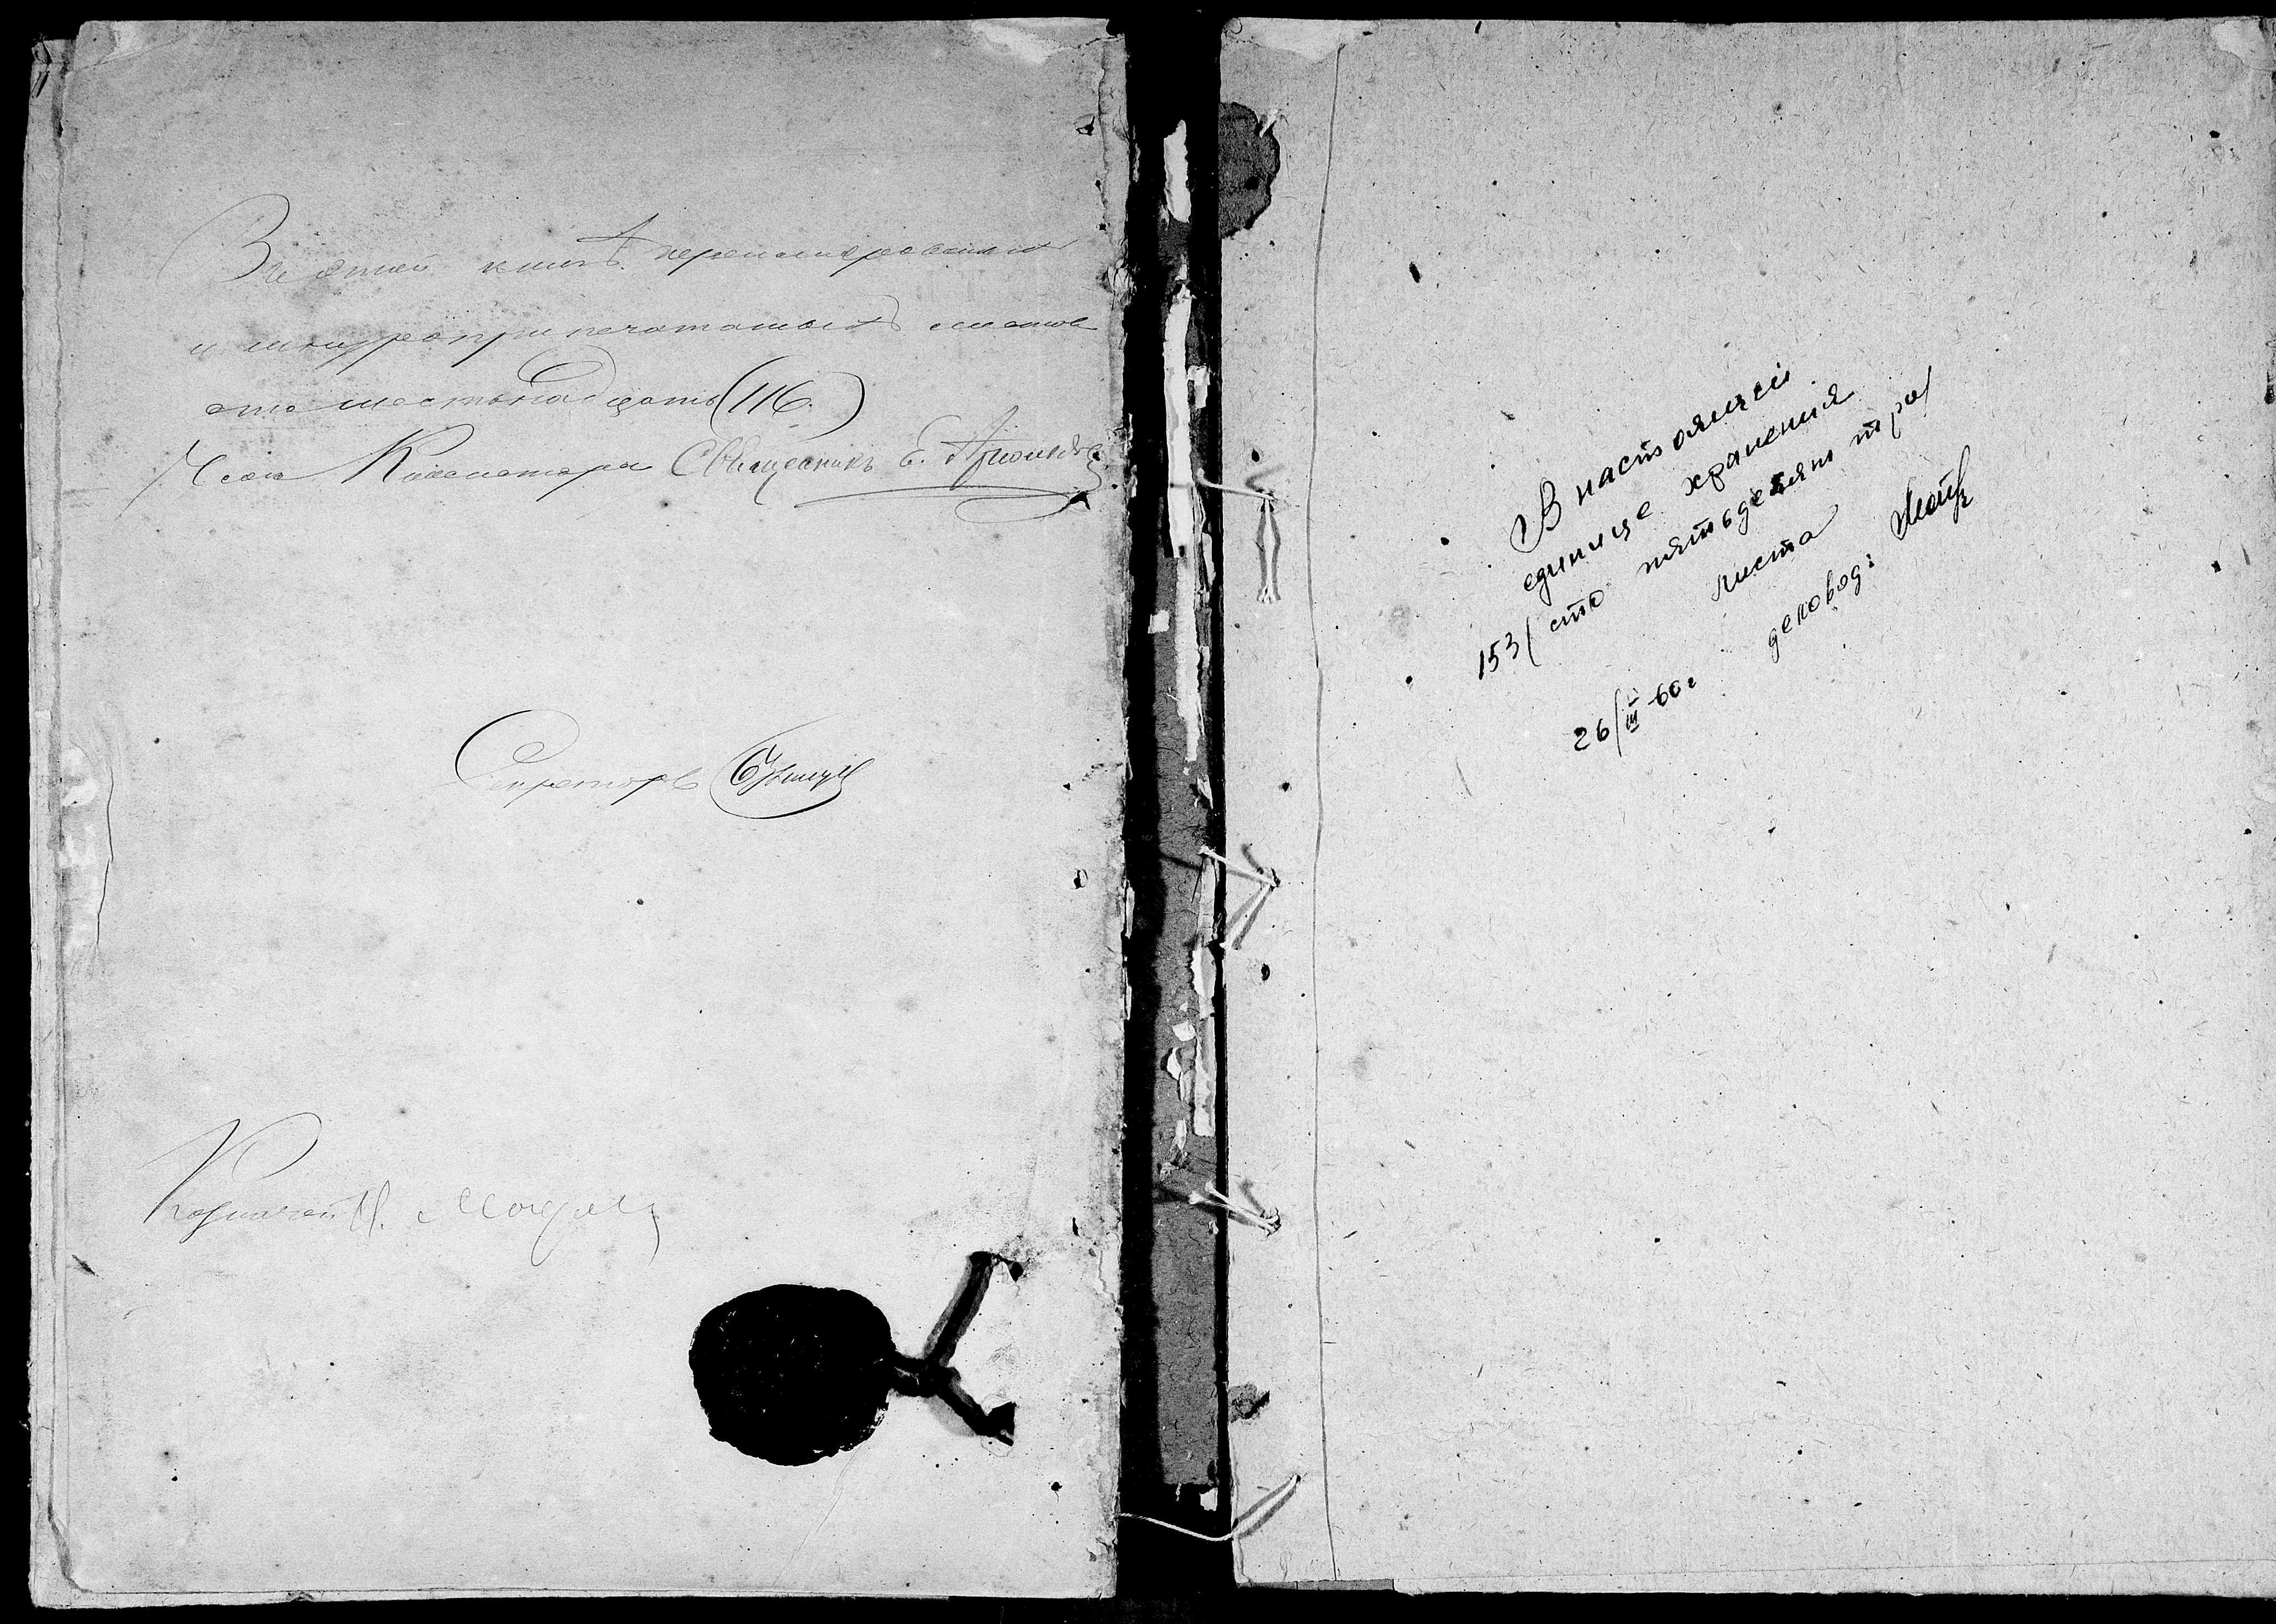 В этой книгѣ перенумерованныхъ
и шнуроприпечатаныхъ листов
сто шестьнадцать (116.)
Членъ Консисторіи Священникъ Е.
Секретарь
Казначей Н.
В настоящей
единице хранения
153/ сто пятьдесят три/
листа
26/III-60г деловод: